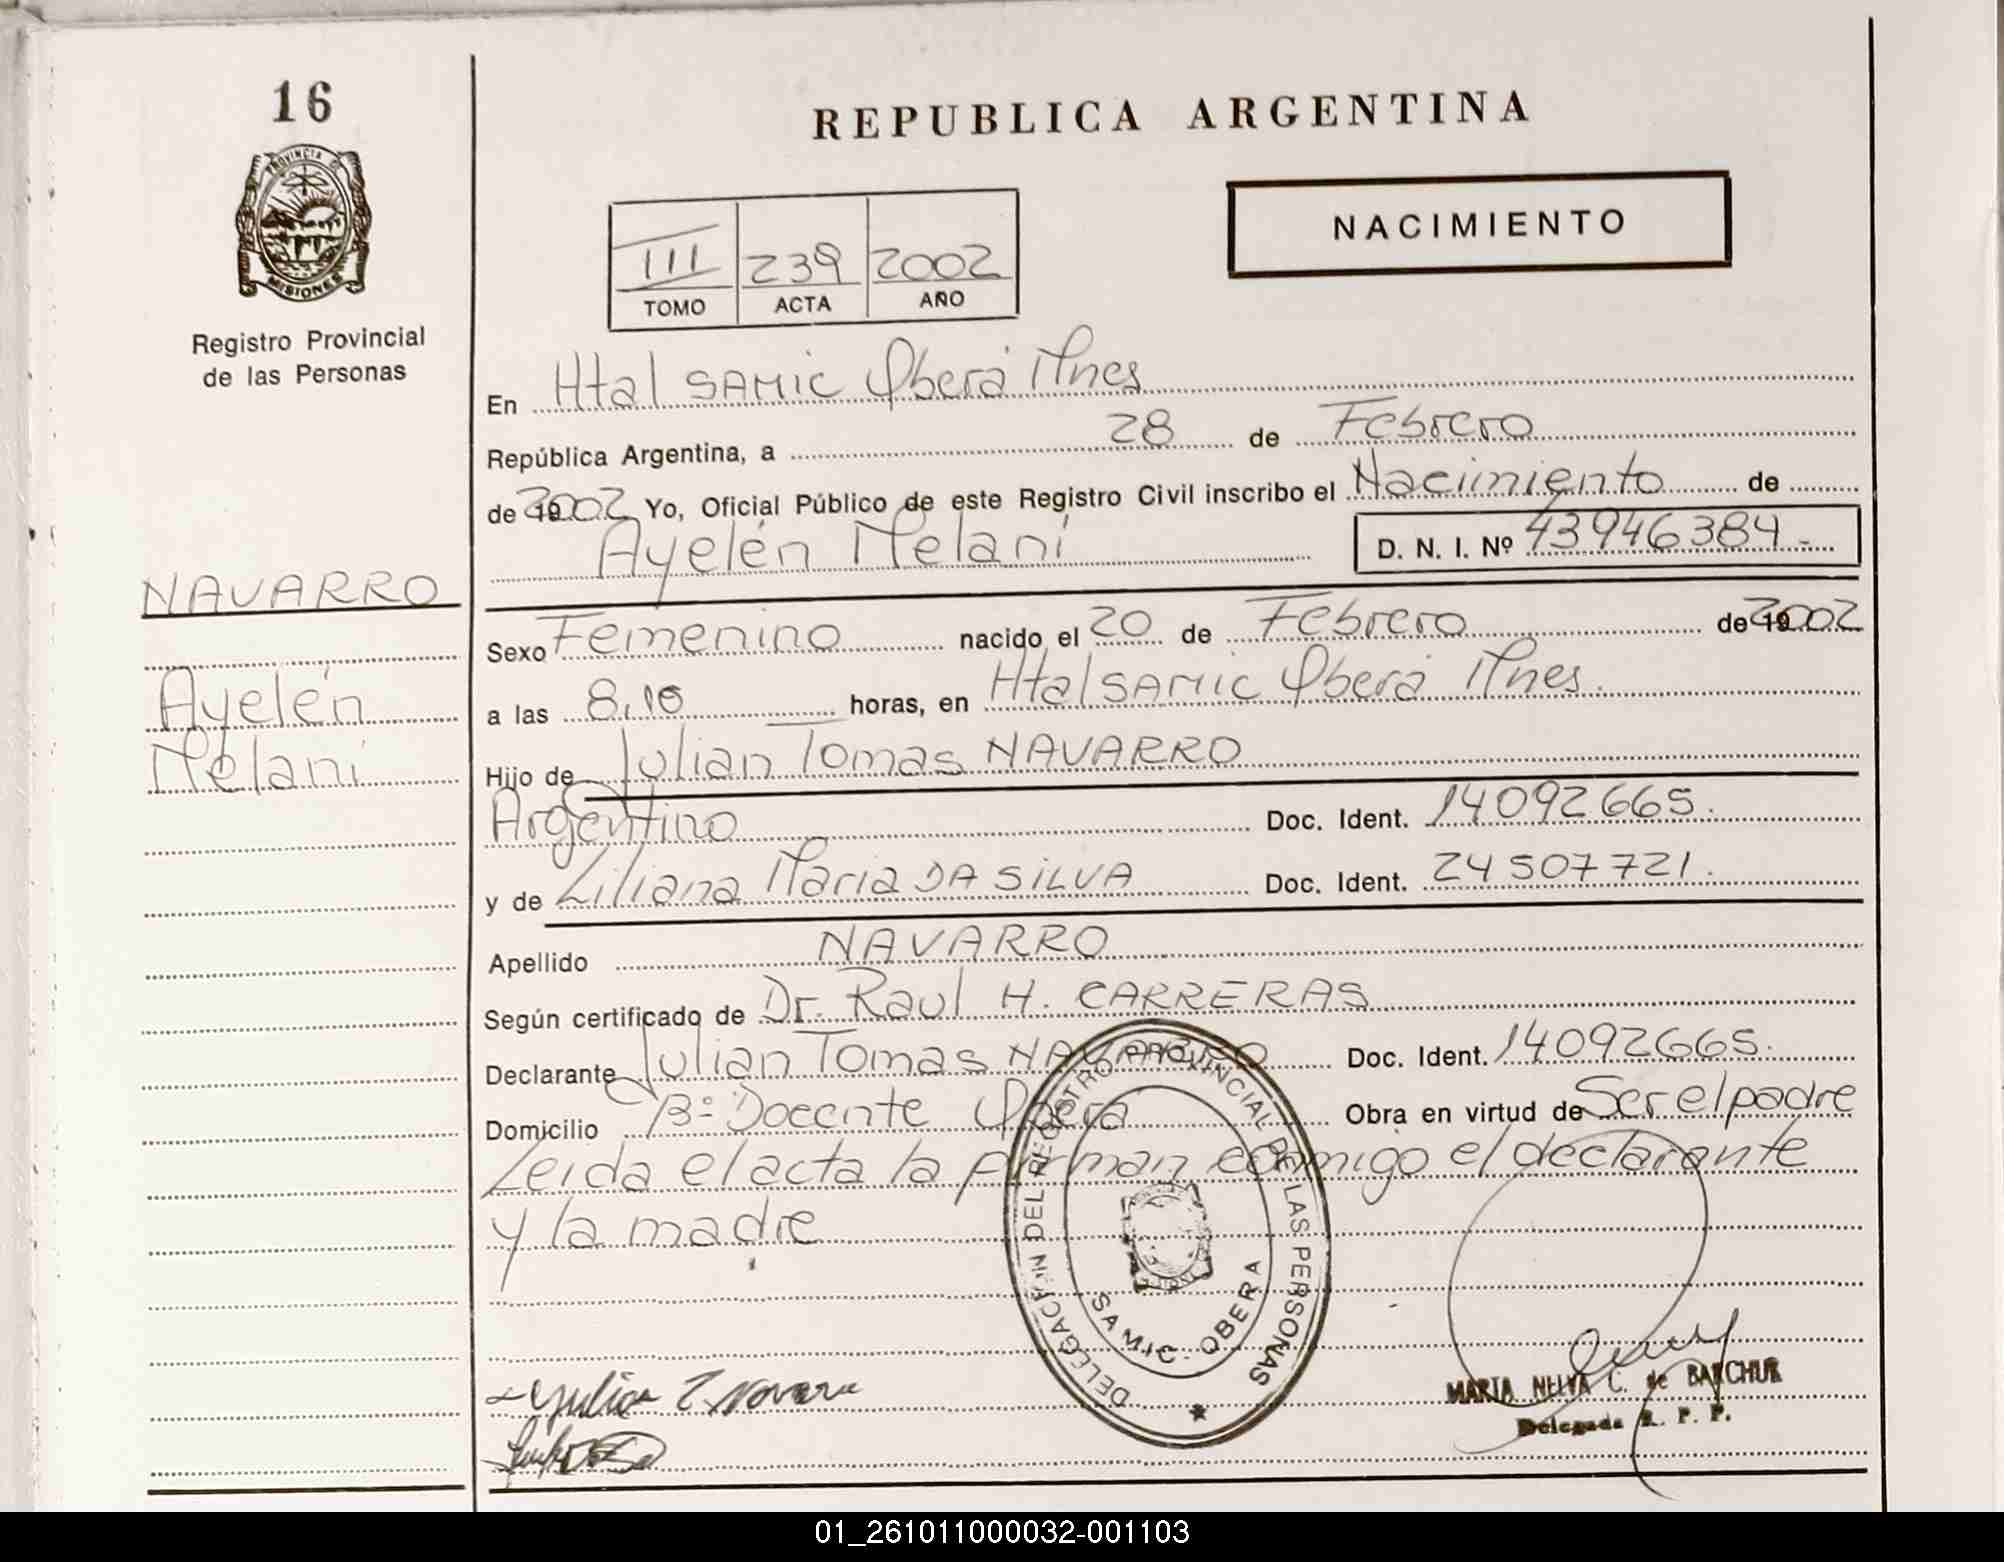 16
PROVINCIA DE
MISIONES
Registro Provincial
de las Personas
NAVARRO
Ayelén
Melani
REPUBLICA ARGENTINA
NACIMIENTO
III 239 2002
TOMO ACTA AÑO
En Htal SAMIC Oberá Mnes
República Argentina, a 28 de Febrero
de 2002 Yo, Oficial Público de este Registro Civil inscribo el Nacimiento de
Ayelén Melani D. N. I. Nº 43946384.-
Sexo Femenino nacido el 20 de Febrero de 2002
a las 8,10 horas, en Htal SAMIC Oberá Mnes.
Hijo de Julian Tomas NAVARRO
Argentino Doc. Ident. 14092665.
y de Liliana Maria DA SILVA Doc. Ident. 24507721.
Apellido NAVARRO
Según certificado de Dr. Raul H. CARRERAS
Declarante Julian Tomas NAVARRO Doc. Ident. 14092665.
Domicilio Bº Docente Oberá Obra en virtud de Ser el padre
Leida el acta la firman conmigo el declarante
y la madre
DELEGACION DEL REGISTRO PROVINCIAL DE LAS PERSONAS
SAMIC - OBERA
Julian T. Navarro
MARIA NELVA C. de BANCHUK
Delegada R. P. P.
01_261011000032-001103